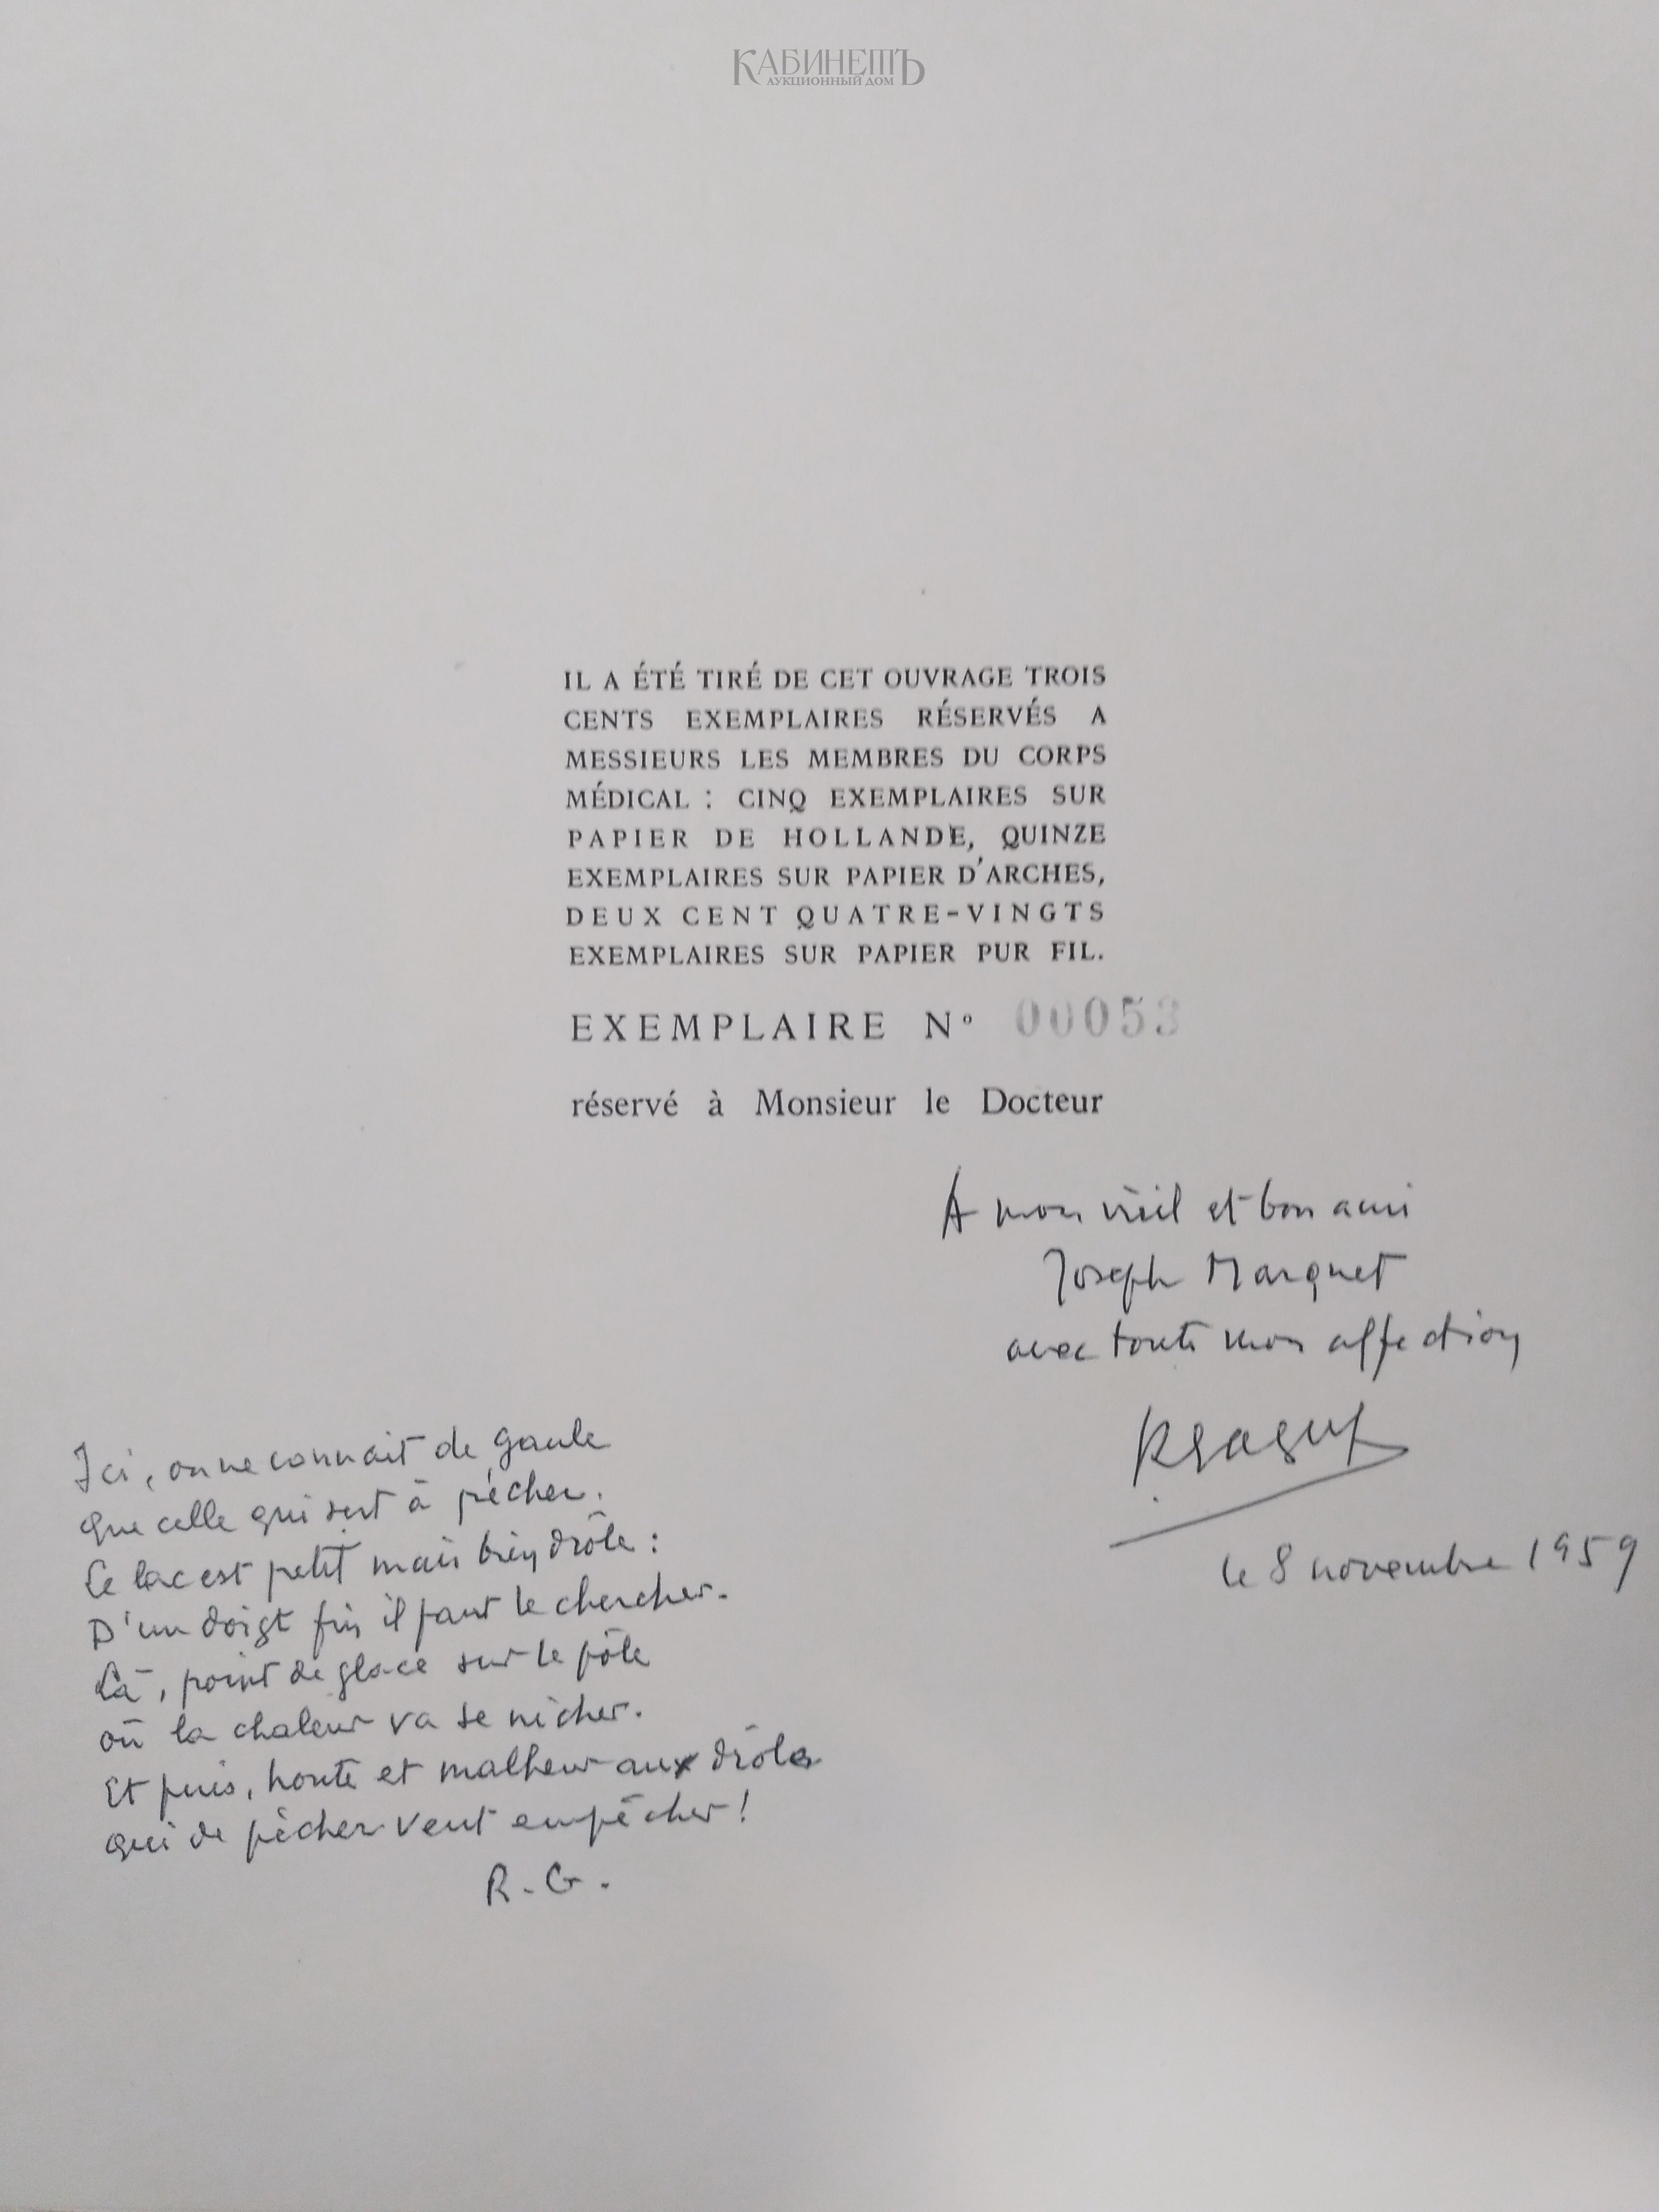 КАБИНЕТЪ
АУКЦИОННЫЙ ДОМ
IL A ÉTÉ TIRÉ DE CET OUVRAGE TROIS
CENTS EXEMPLAIRES RÉSERVÉS A
MESSIEURS LES MEMBRES DU CORPS
MÉDICAL : CINQ EXEMPLAIRES SUR
PAPIER DE HOLLANDE, QUINZE
EXEMPLAIRES SUR PAPIER D'ARCHES,
DEUX CENT QUATRE-VINGTS
EXEMPLAIRES SUR PAPIER PUR FIL.
EXEMPLAIRE Nº 00053
réservé à Monsieur le Docteur
A mon vieil et bon ami
Joseph Marquet
avec toute mon affection
le 8 novembre 1959
Ici, on ne connait de gaule
que celle qui sert à pécher.
Le lac est petit mais bien drôle :
D'un doigt fin il faut le chercher.
Là, point de glace sur le pôle
où la chaleur va se nicher.
Et puis, honte et malheur aux drôles
qui de pècher veut empêcher !
R. G.